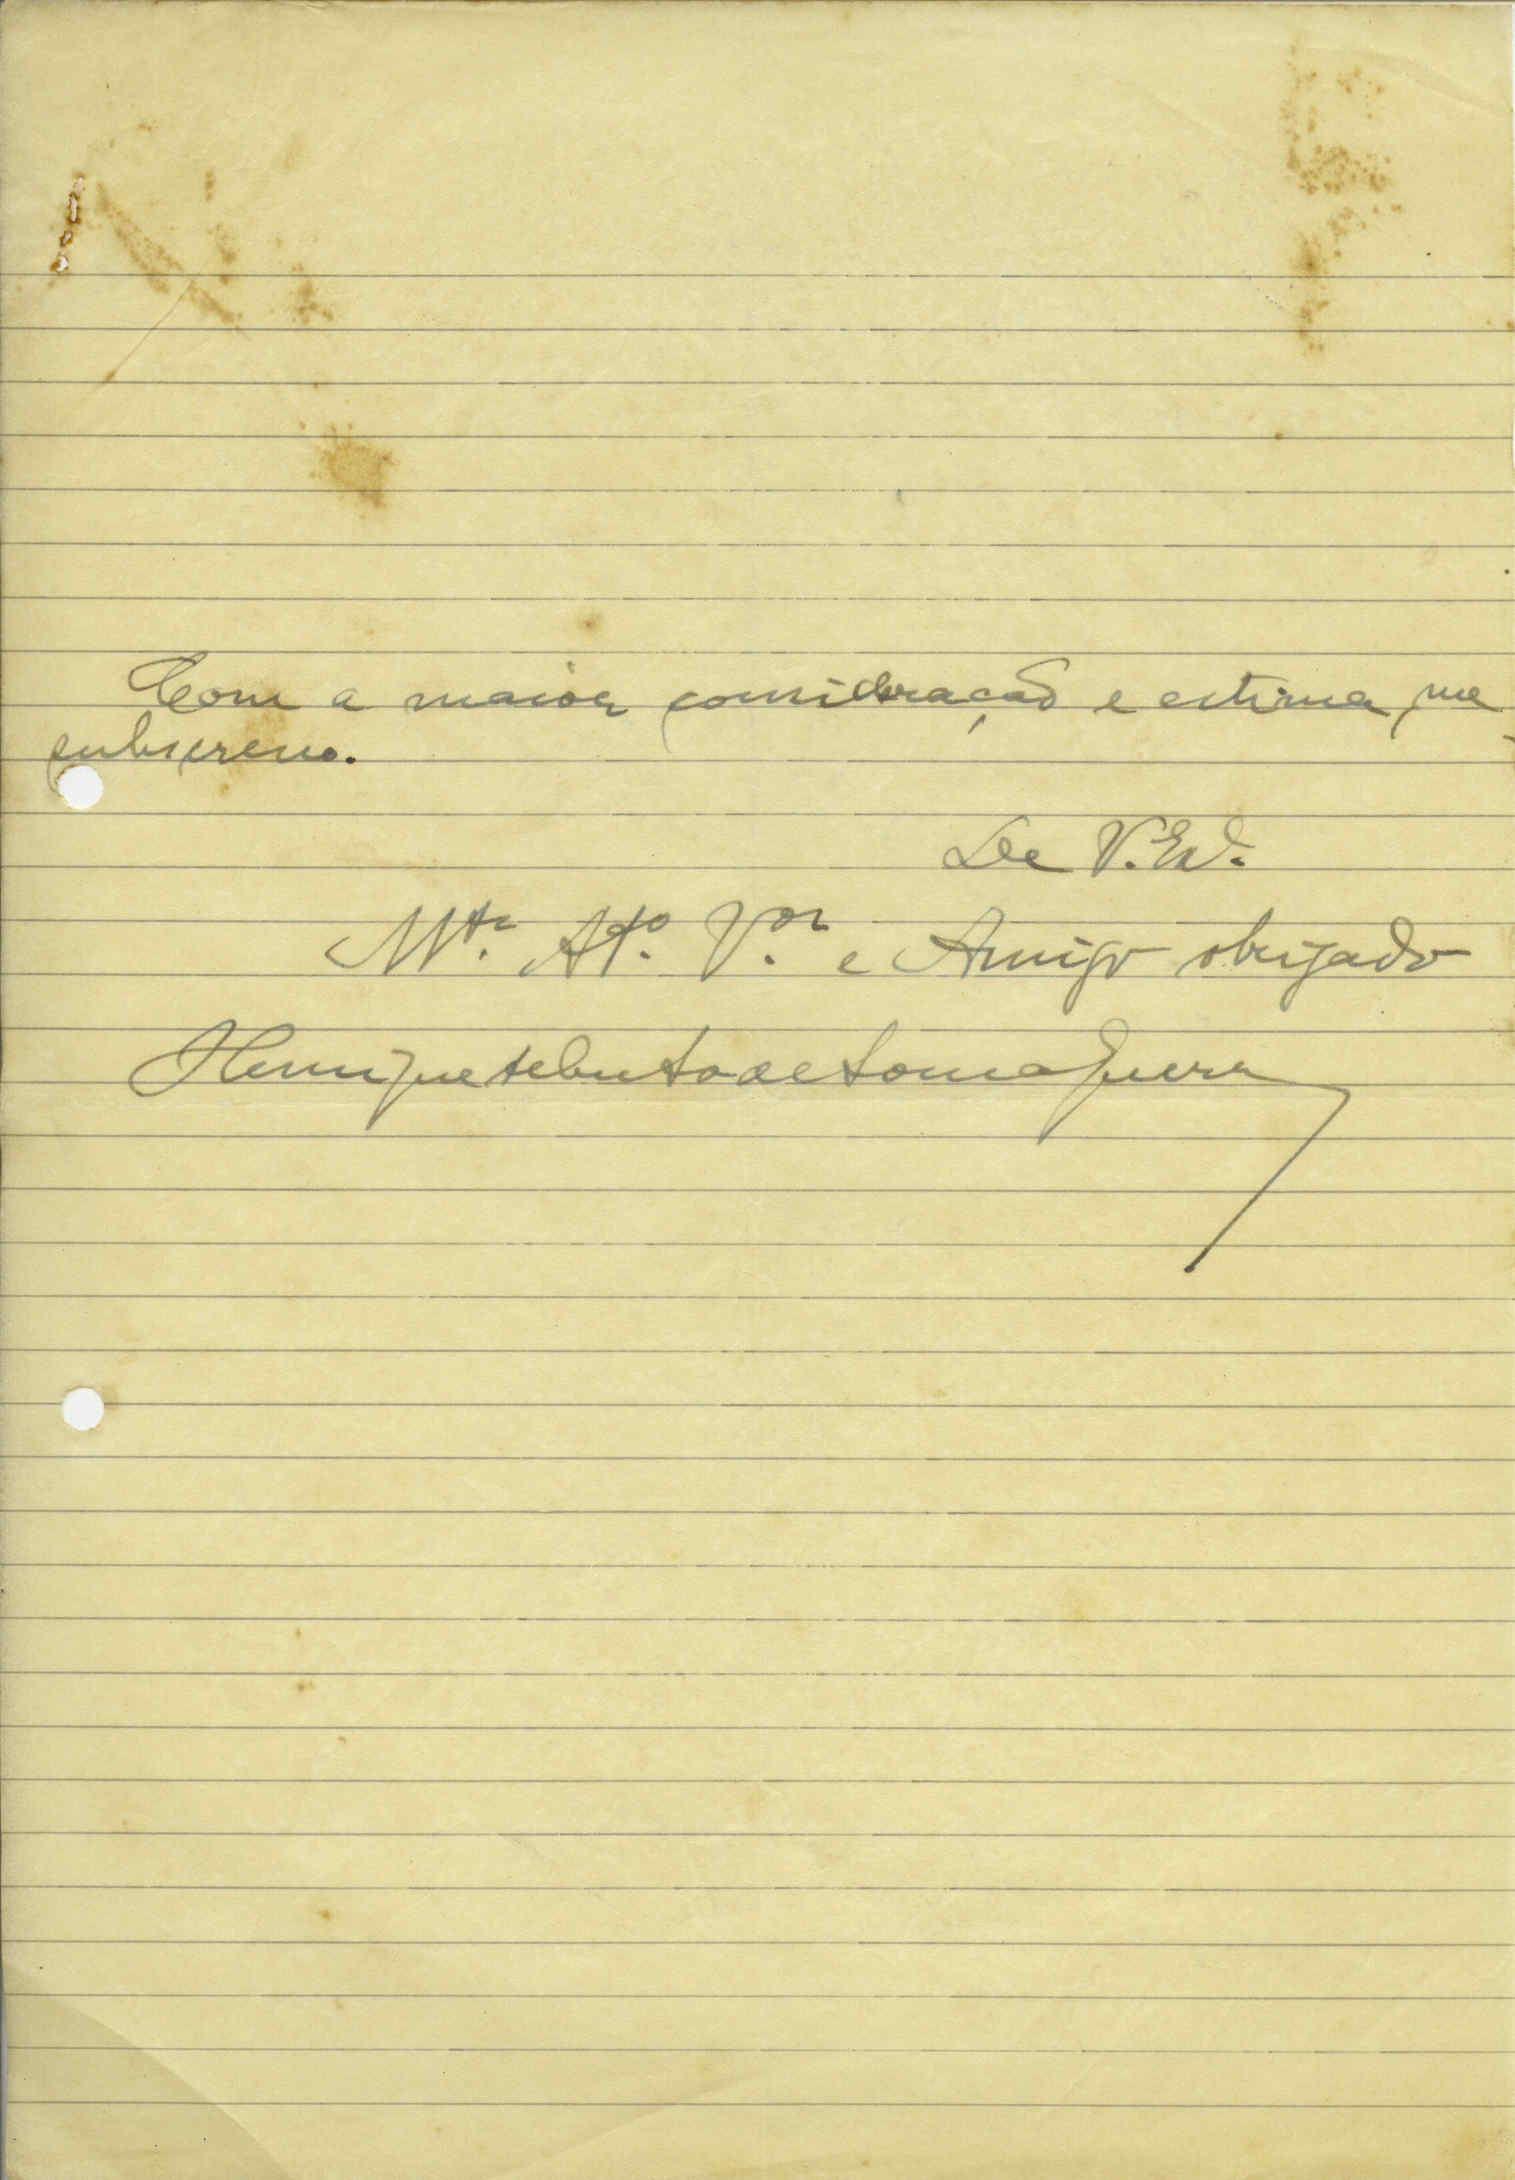 Com a maior consideração e estima, me
subscrevo.
De V. Ex.ª
Mt.º At.º V.or e Amigo obrigado
Henrique de Sousa Guerra